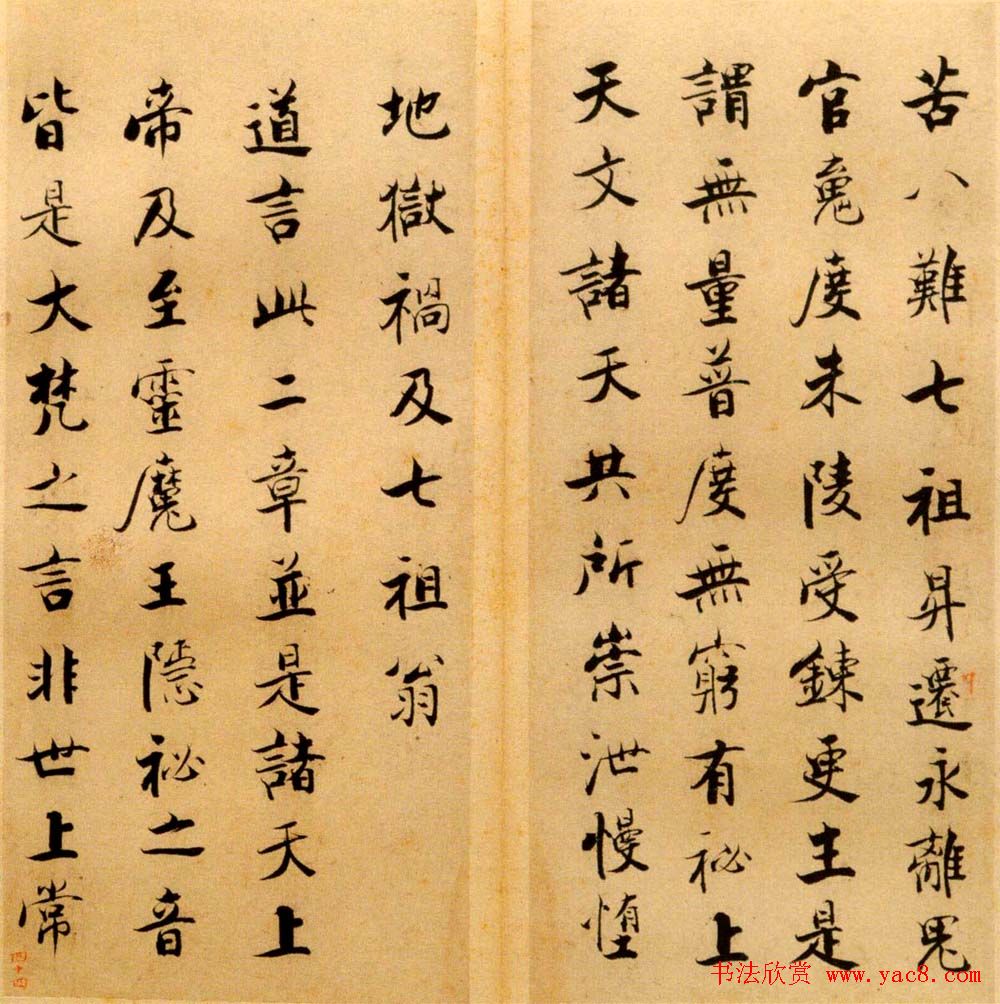 苦八難七祖昇遷永離鬼
官魂度朱陵受鍊更生是
謂無量普度無窮有祕上
天文諸天共所崇泄慢墮
地獄禍及七祖翁
道言此二章並是諸天上
帝及至靈魔王隱祕之音
皆是大梵之言非世上常
四十四
书法欣赏 www.yac8.com